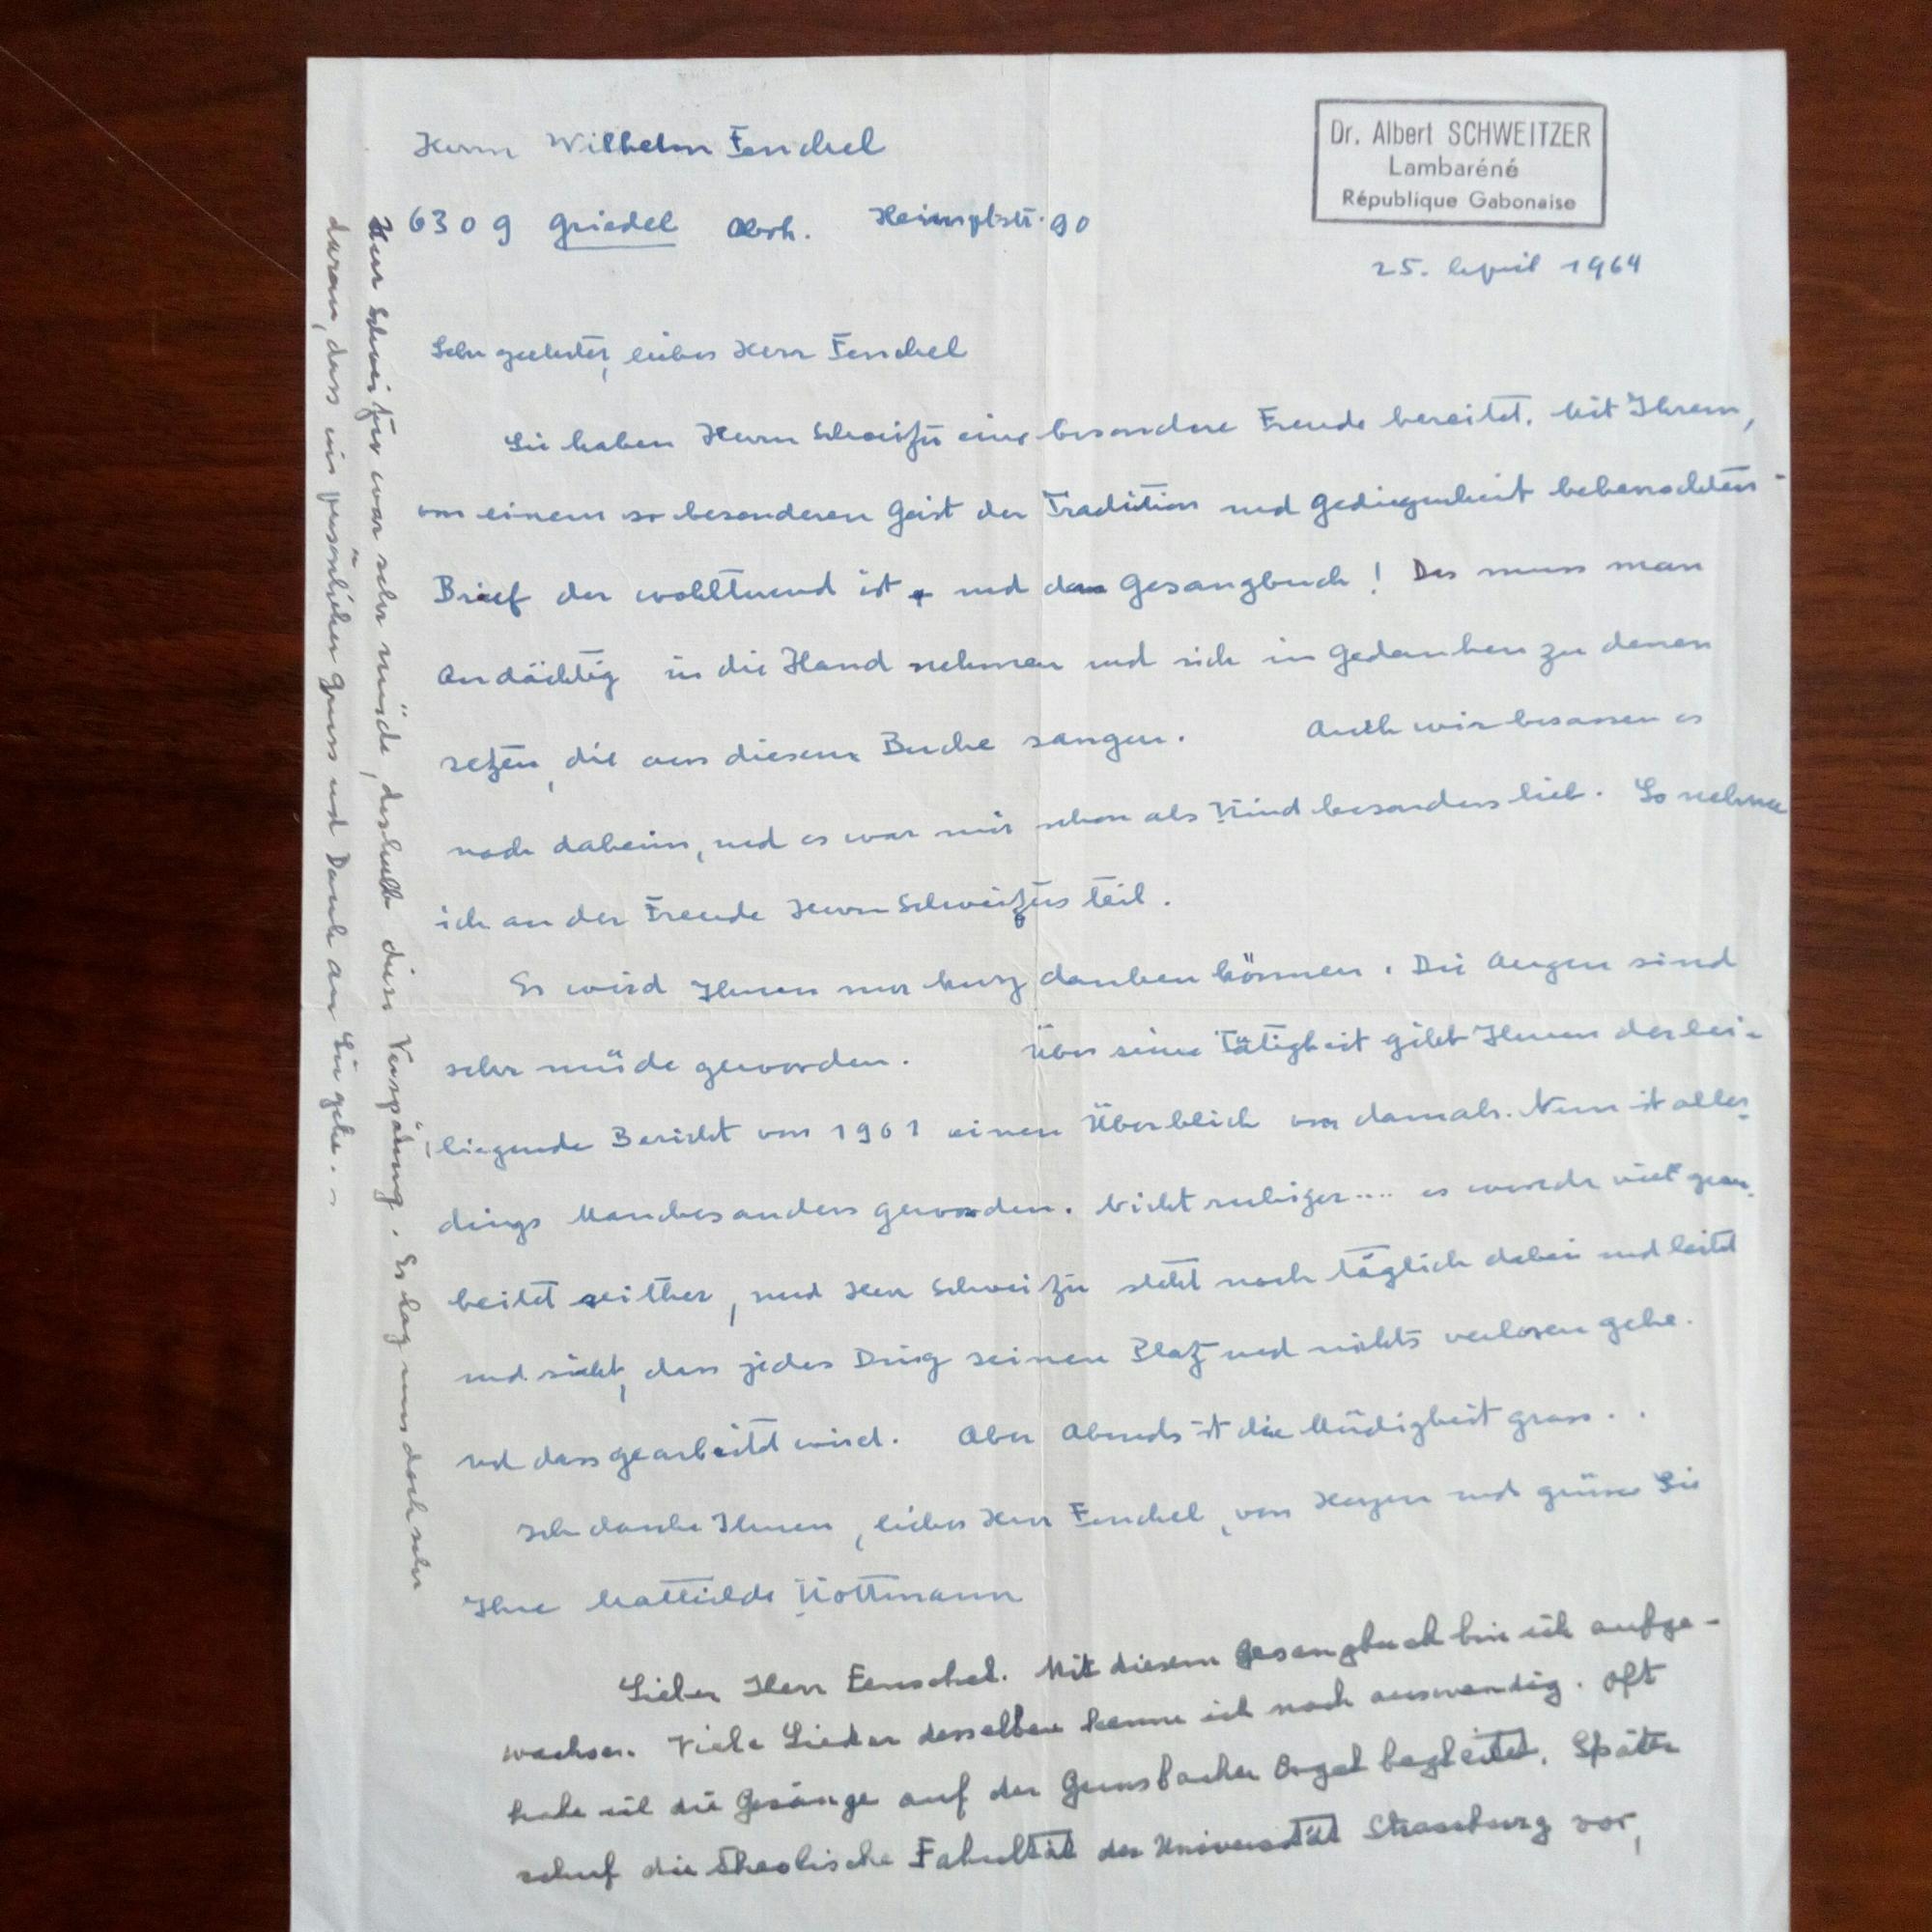 Herrn Wilhelm Fenchel
6309 Griedel Obrh. Hauptstr. 90
Dr. Albert SCHWEITZER
Lambaréné
République Gabonaise
25. April 1964
Sehr geehrter, lieber Herr Fenchel
Sie haben Herrn Schweitzer eine besondere Freude bereitet. Mit Ihrem,
von einem so besonderen Geist der Tradition und Gediegenheit
Brief der wohltuend ist und das Gesangbuch! Das muss man
andächtig in die Hand nehmen und sich in Gedanken zu denen
setzen, die aus diesem Buche sangen. Auch wir besassen es
noch daheim, und es war mir schon als Kind besonders lieb. So nehme
ich an der Freude Herrn Schweitzers teil.
Er wird Ihnen nur kurz danken können. Die Augen sind
sehr müde geworden. Über seine Tätigkeit gibt Ihnen der bei-
liegende Bericht von 1961 einen Überblick von damals. Nun ist aller-
dings Manches anders geworden. Nicht ruhiger.... es wurde viel gear-
beitet seither, und Herr Schweitzer steht noch täglich dabei und leitet
und sieht, dass jedes Ding seinen Platz und nichts verloren gehe.
und dass gearbeitet wird. Aber Abends ist die Müdigkeit gross..
Ich danke Ihnen, lieber Herr Fenchel, von Herzen und grüsse Sie
Ihre Mathilde Kottmann
Lieber Herr Fenschel. Mit diesem Gesangbuch bin ich aufge-
wachsen. Viele Lieder desselben kenne ich noch auswendig. Oft
habe ich die Gesänge auf der Gunsbacher Orgel begleitet. Später
schuf die Theolische Fakultät der Universität Strassburg vor,
Herr Schweitzer war sehr müde, deshalb diese Verspätung. Es lag uns doch sehr
daran, dass ein persönlicher Gruss und Dank an Sie gehe. –